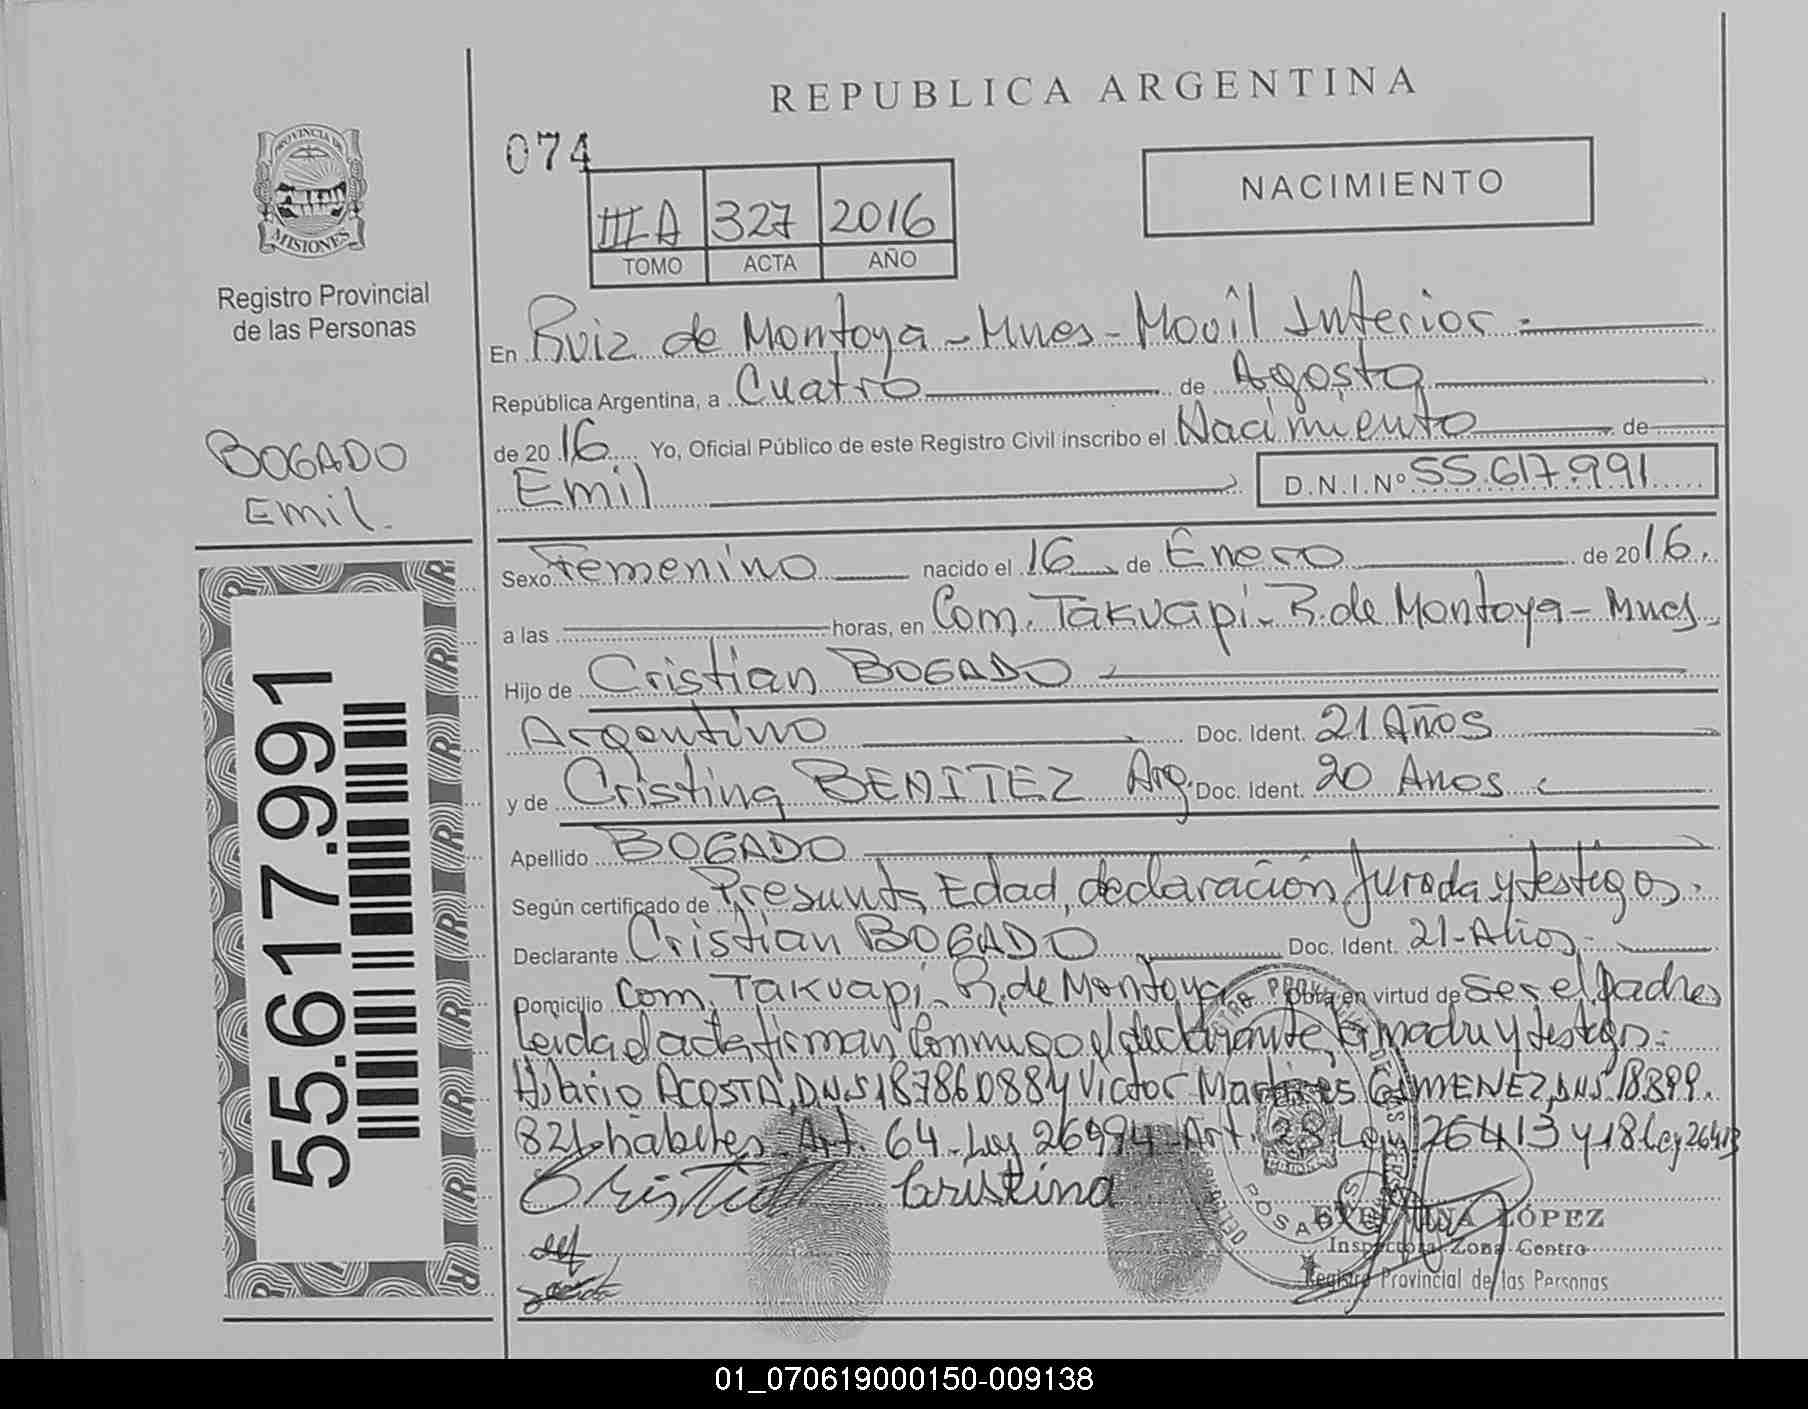 REPUBLICA ARGENTINA
074
NACIMIENTO
III A 327 2016
TOMO ACTA AÑO
PROVINCIA DE
MISIONES
Registro Provincial
de las Personas
BOGADO
Emil.
55.617.991
En Ruiz de Montoya - Mnes - Movil Interior
República Argentina, a Cuatro de Agosto
de 2016 Yo, Oficial Público de este Registro Civil inscribo el Nacimiento de
Emil D.N.I.Nº 55.617.991
Sexo Femenino nacido el 16 de Enero de 2016.
a las horas, en Com. Takuapi - R. de Montoya - Mnes
Hijo de Cristian BOGADO
Argentino Doc. Ident. 21 Años
y de Cristina BENITEZ Arg. Doc. Ident. 20 Años
Apellido BOGADO
Según certificado de Presunta Edad, declaración Jurada y testigos.
Declarante Cristian BOGADO Doc. Ident. 21 - Años
Domicilio Com. Takuapi - R. de Montoya Obra en virtud de ser el padre
Leida el acta, firman conmigo el declarante, la madre y testigos:
Hilario ACOSTA, DNI 18786088 y Victor Martires GIMENEZ DNI 18.899.
821 habiles. Art. 64 - Ley 26994 - Art. 28 Ley 26413 y 18 Ley 26413
Cristina
LÓPEZ
Inspectora Zona Centro
Registro Provincial de las Personas
POSADAS
01_070619000150-009138